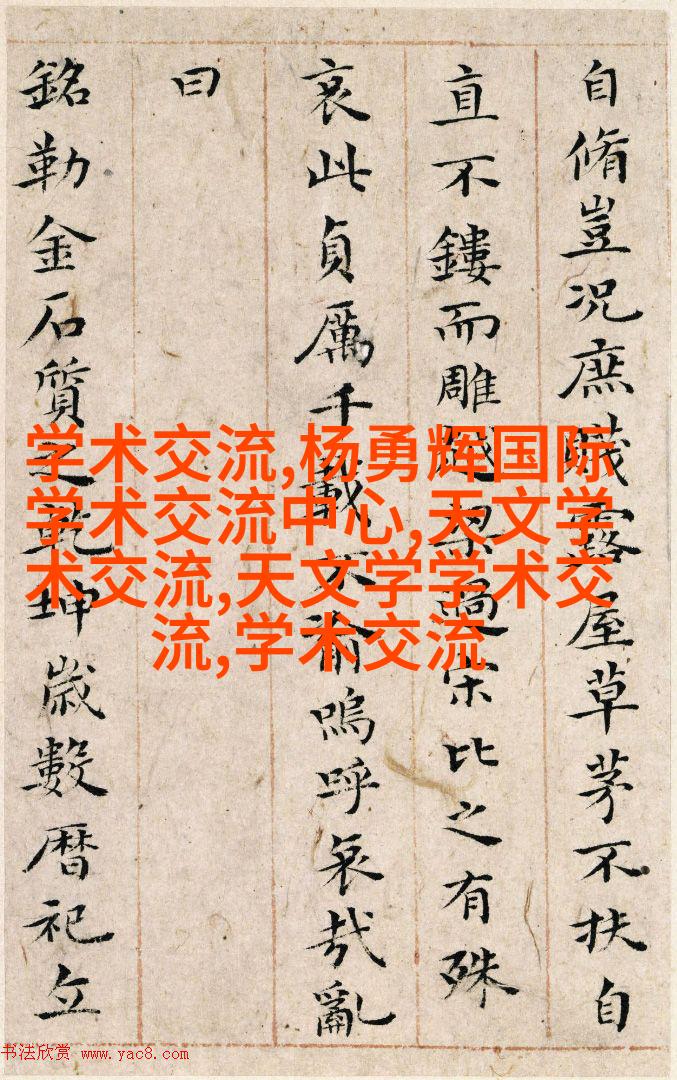 自脩豈況庶賤露屋草茅不扶自
直不鏤而雕越梁過宋比之有殊
哀此貞厲千載不渝嗚呼哀哉亂
曰
銘勒金石質之乾坤歲數暦祀立
学术交流,杨勇辉国际
学术交流中心,天文学
术交流,天文学学术交
流,学术交流
书法欣赏 www.yac8.com